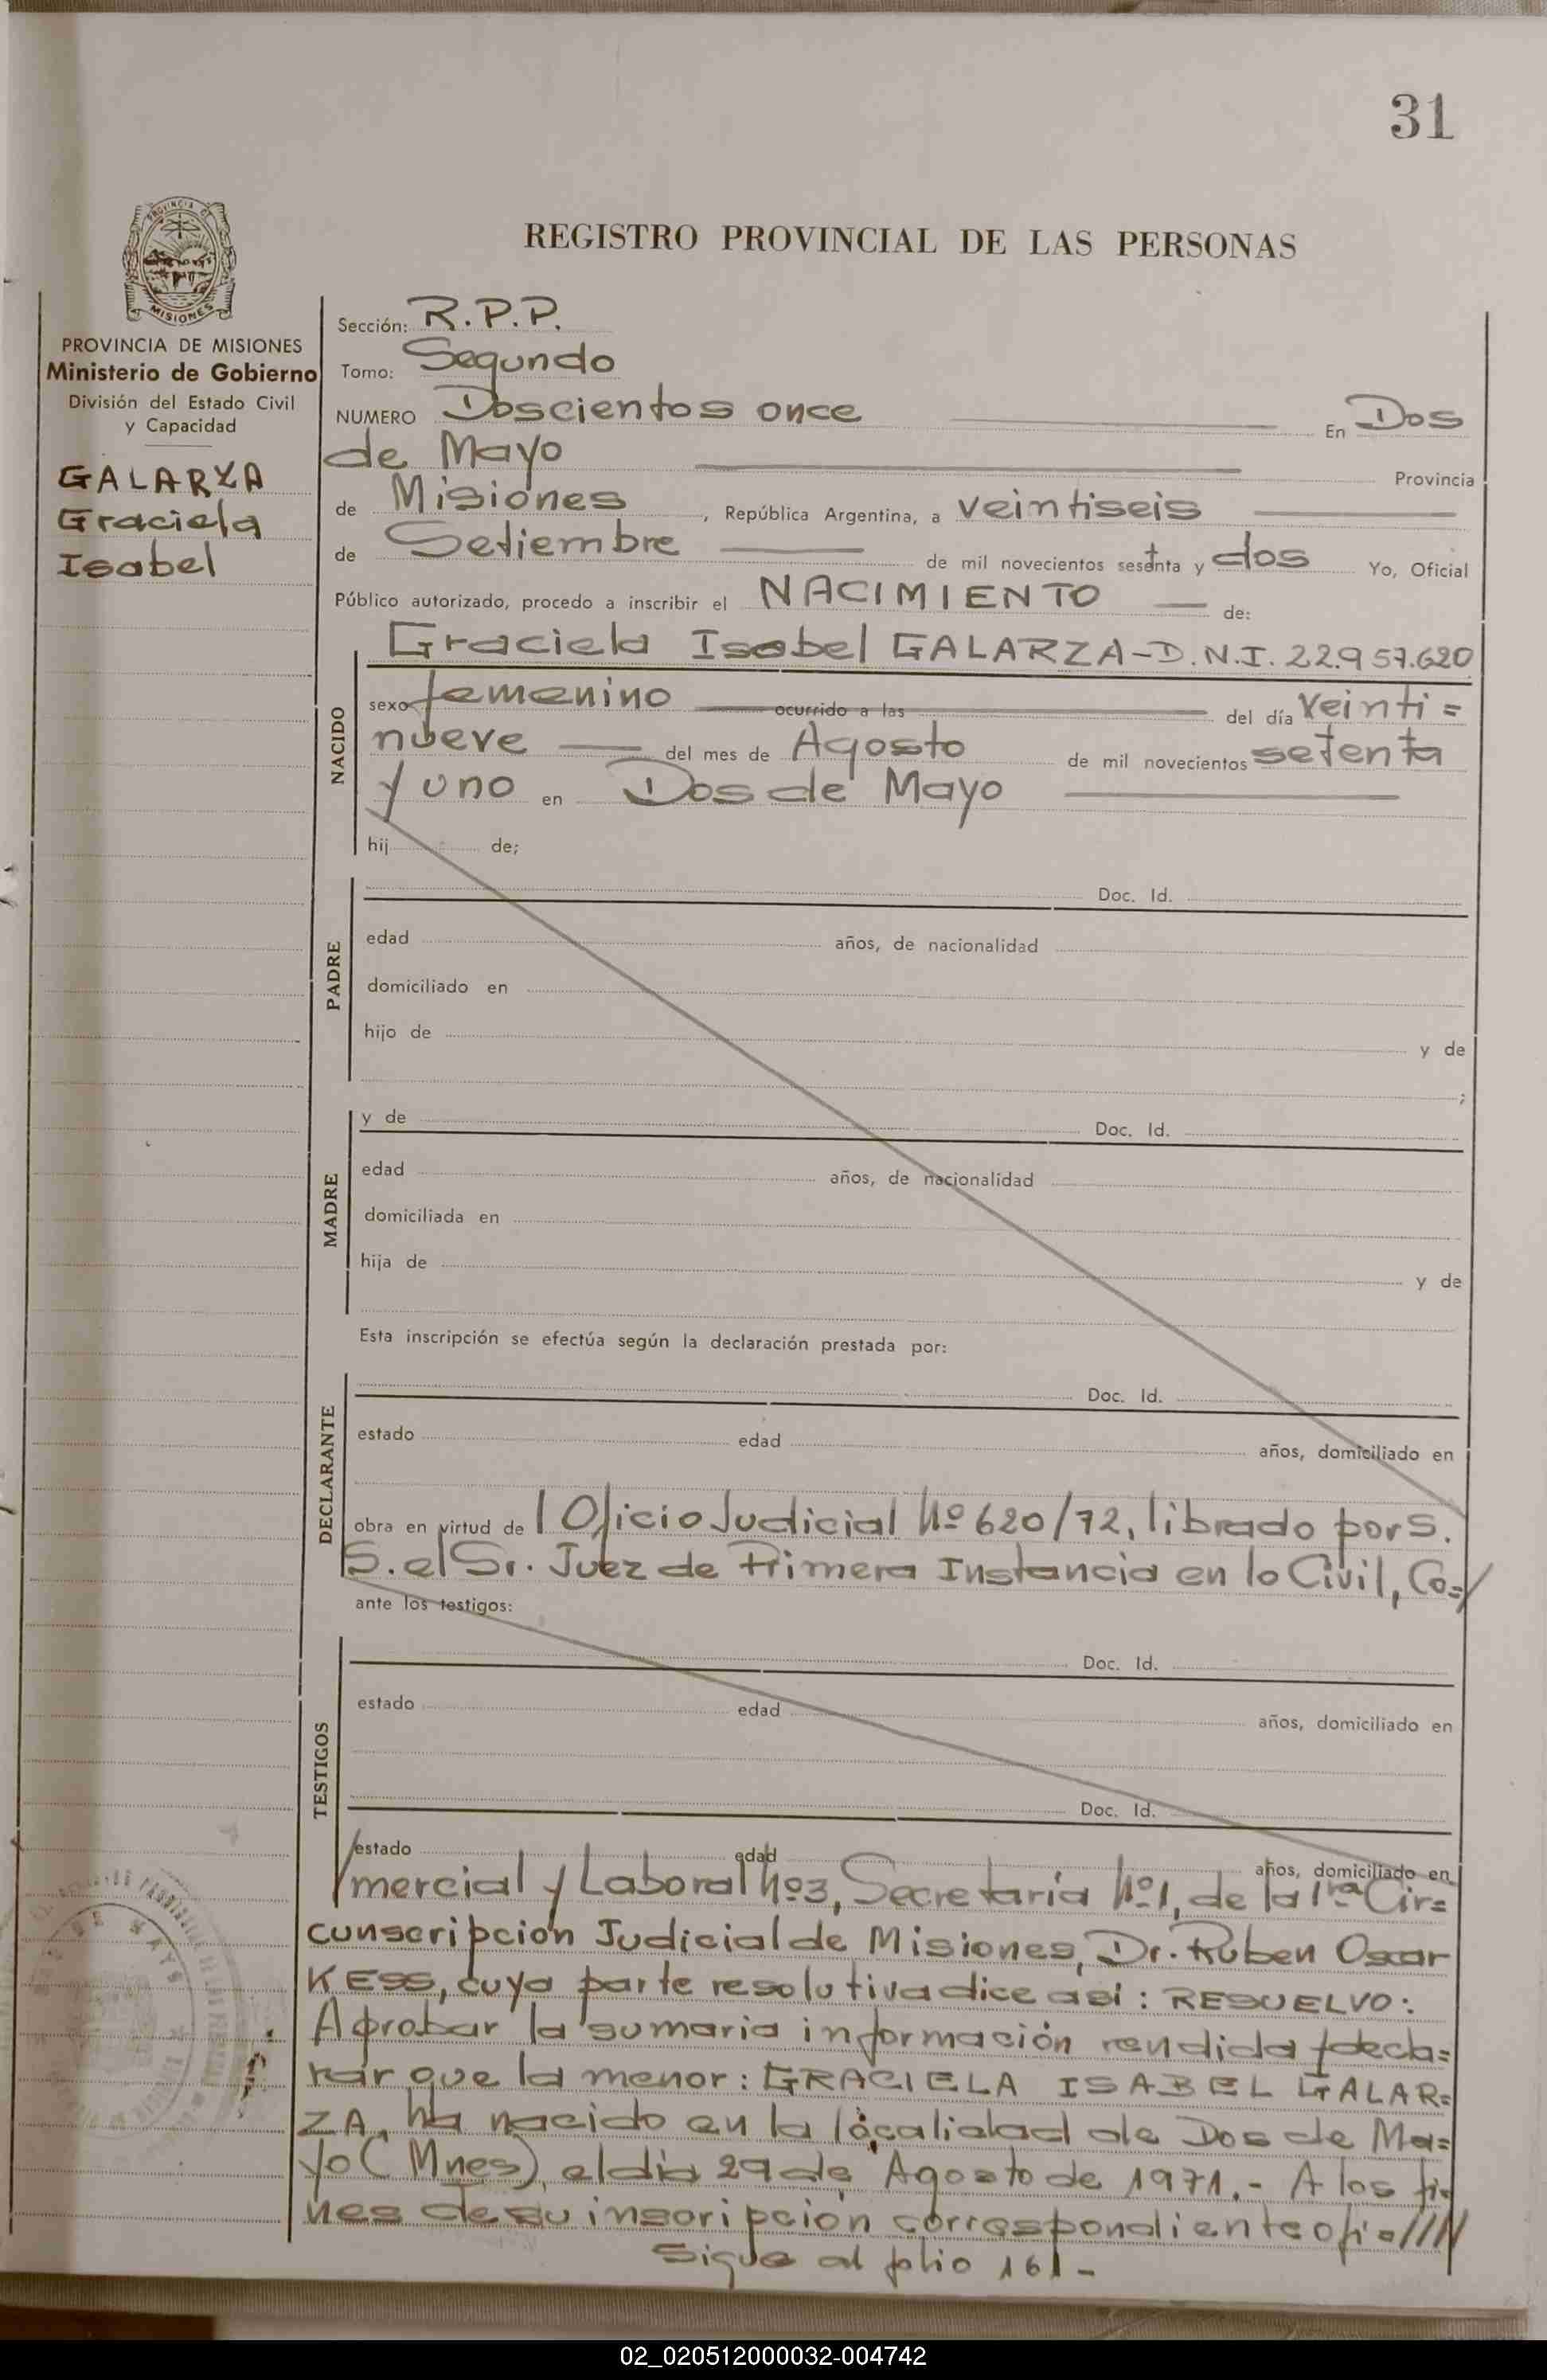 31
PROVINCIA DE
MISIONES
REGISTRO PROVINCIAL DE LAS PERSONAS
PROVINCIA DE MISIONES
Ministerio de Gobierno
División del Estado Civil
y Capacidad
GALARZA
Graciela
Isabel
Sección: R.P.P.
Tomo: Segundo
NUMERO Doscientos once En Dos
de Mayo Provincia
de Misiones, República Argentina, a veintiseis
de Setiembre de mil novecientos setenta y dos Yo, Oficial
Público autorizado, procedo a inscribir el NACIMIENTO de:
Graciela Isabel GALARZA - D.N.I. 22.957.620
NACIDO
sexo femenino ocurrido a las del día veinti=
nueve del mes de Agosto de mil novecientos setenta
y uno en Dos de Mayo
hij de;
PADRE
Doc. Id.
edad años, de nacionalidad
domiciliado en
hijo de y de
;
MADRE
y de Doc. Id.
edad años, de nacionalidad
domiciliada en
hija de y de
Esta inscripción se efectúa según la declaración prestada por:
DECLARANTE
Doc. Id.
estado edad años, domiciliado en
obra en virtud de l Oficio Judicial Nº 620/72, librado por S.
S. el Sr. Juez de Primera Instancia en lo Civil, Co=/
ante los testigos:
TESTIGOS
Doc. Id.
estado edad años, domiciliado en
Doc. Id.
estado edad años, domiciliado en
/mercial y Laboral Nº3, Secretaría Nº1, de la 1ra Cir=
cunscripción Judicial de Misiones, Dr. Ruben Oscar
KESS, cuya parte resolutiva dice así: RESUELVO:
Aprobar la sumaria información rendida y decla=
rar que la menor: GRACIELA ISABEL GALAR=
ZA, ha nacido en la localidad de Dos de Ma=
yo (Mnes), el día 29 de Agosto de 1971.- A los fi=
nes de su inscripción correspondiente ofi=////
Sigue al folio 161-
02_020512000032-004742